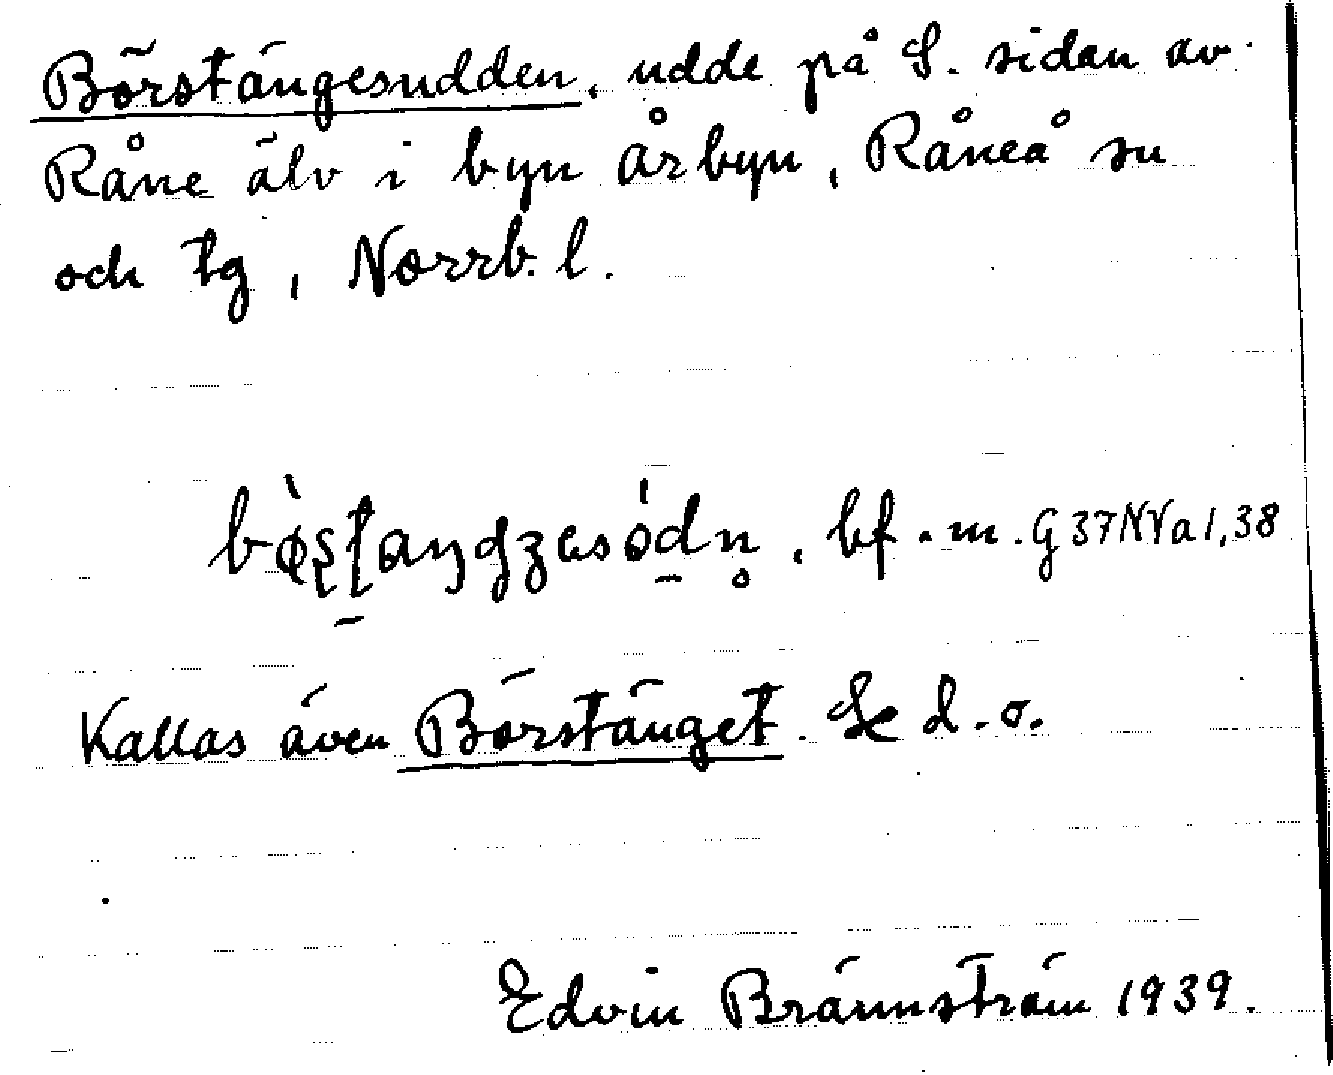 Börstängesudden, udde på S. sidan av
Råne älv i byn Årbyn, Råneå sn
och tg, Norrb. l.
bf. m. G 37 NVa 1, 38
Kallas även Börstänget. Se d. o.
Edvin Brännström 1939.